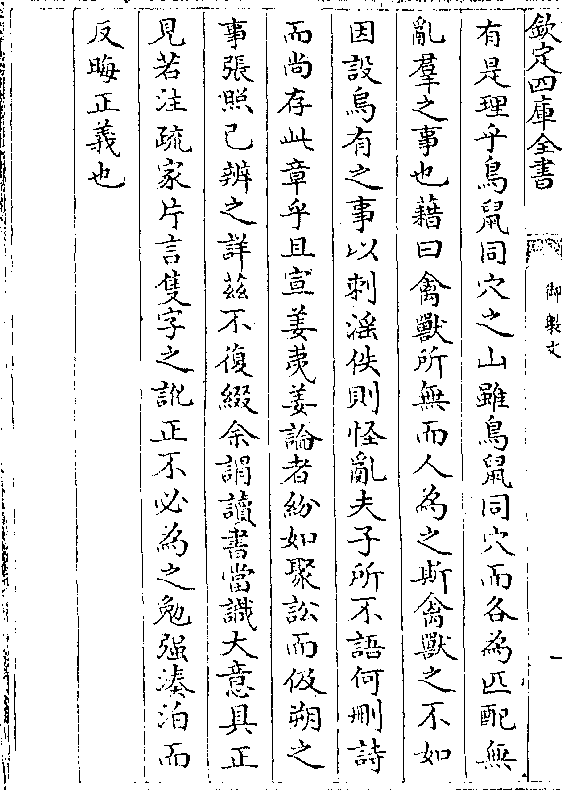 欽定四庫全書
御製文
一
有是理乎鳥鼠同穴之山雖鳥鼠同穴而各為匹配無
亂羣之事也藉曰禽獸所無而人為之斯禽獸之不如
因設烏有之事以刺滛佚則怪亂夫子所不語何刪詩
而尚存此章乎且宣姜夷姜論者紛如聚訟而伋朔之
事張照已辨之詳茲不復綴余謂讀書當識大意具正
見若注疏家片言隻字之訛正不必為之勉强湊泊而
反晦正義也